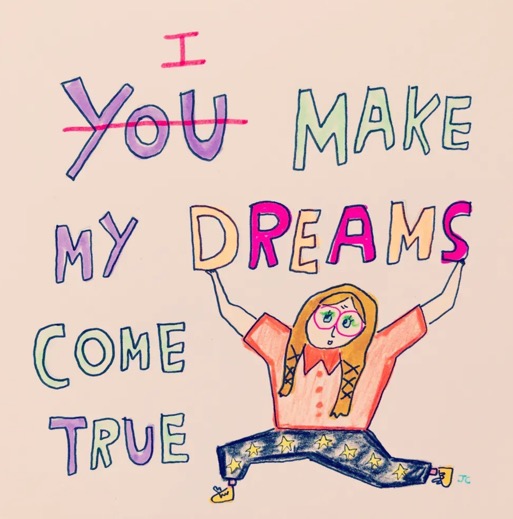 I
YOU MAKE
MY DREAMS
COME
TRUE
JC